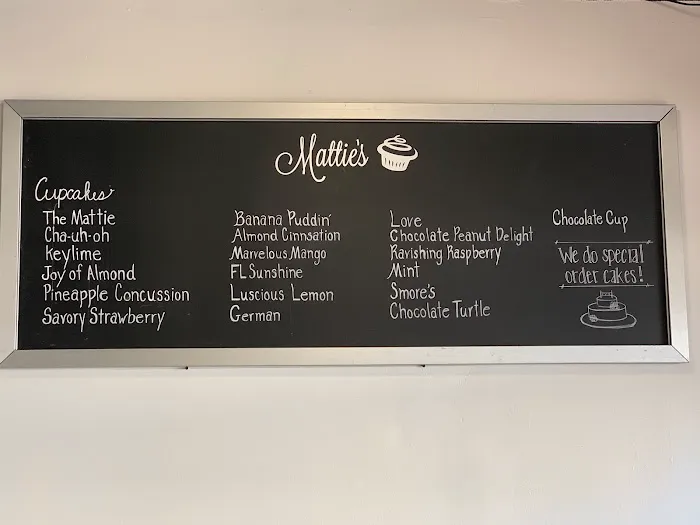 Mattie's
Cupcakes
The Mattie
Cha-uh-oh
Keylime
Joy of Almond
Pineapple Concussion
Savory Strawberry
Banana Puddin'
Almond Cinnsation
Marvelous Mango
FL Sunshine
Luscious Lemon
German
Love
Chocolate Peanut Delight
Ravishing Raspberry
Mint
Smore's
Chocolate Turtle
Chocolate Cup
We do special
order cakes!